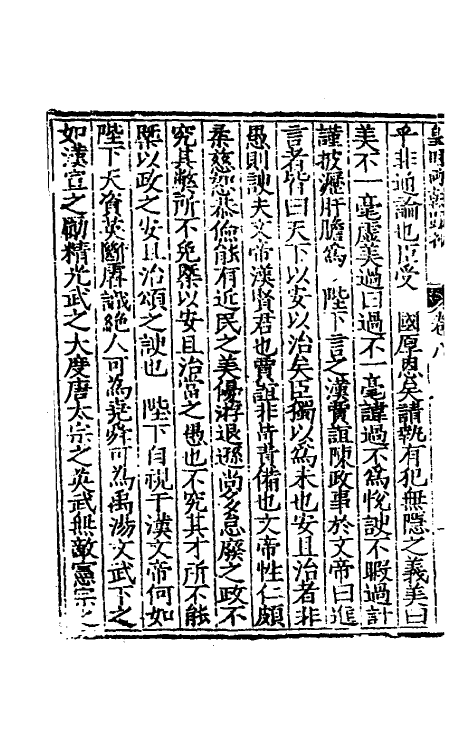 皇明兩朝疏抄 卷八
乎非通論也臣受 國厚恩矣請執有犯無隱之義美曰
美不一毫虛美過曰過不一毫諱過不爲悅諛不暇過計
謹披瀝肝膽爲 陛下言之漢賈誼陳政事於文帝曰進
言者皆曰天下以安以治矣臣獨以爲未也安且治者非
愚則諛夫文帝漢賢君也賈誼非苛責備也文帝性仁頗
柔慈恕恭儉能有近民之美優游退遜尚多怠廢之政不
究其弊所不免槩以安且治當之愚也不究其才所不能
槩以政之安且治頌之諛也 陛下自視于漢文帝何如
陛下天資英斷睿識絕人可為堯舜可為禹湯文武下之
如漢宣之勵精光武之大度唐太宗之英武無敵憲宗之